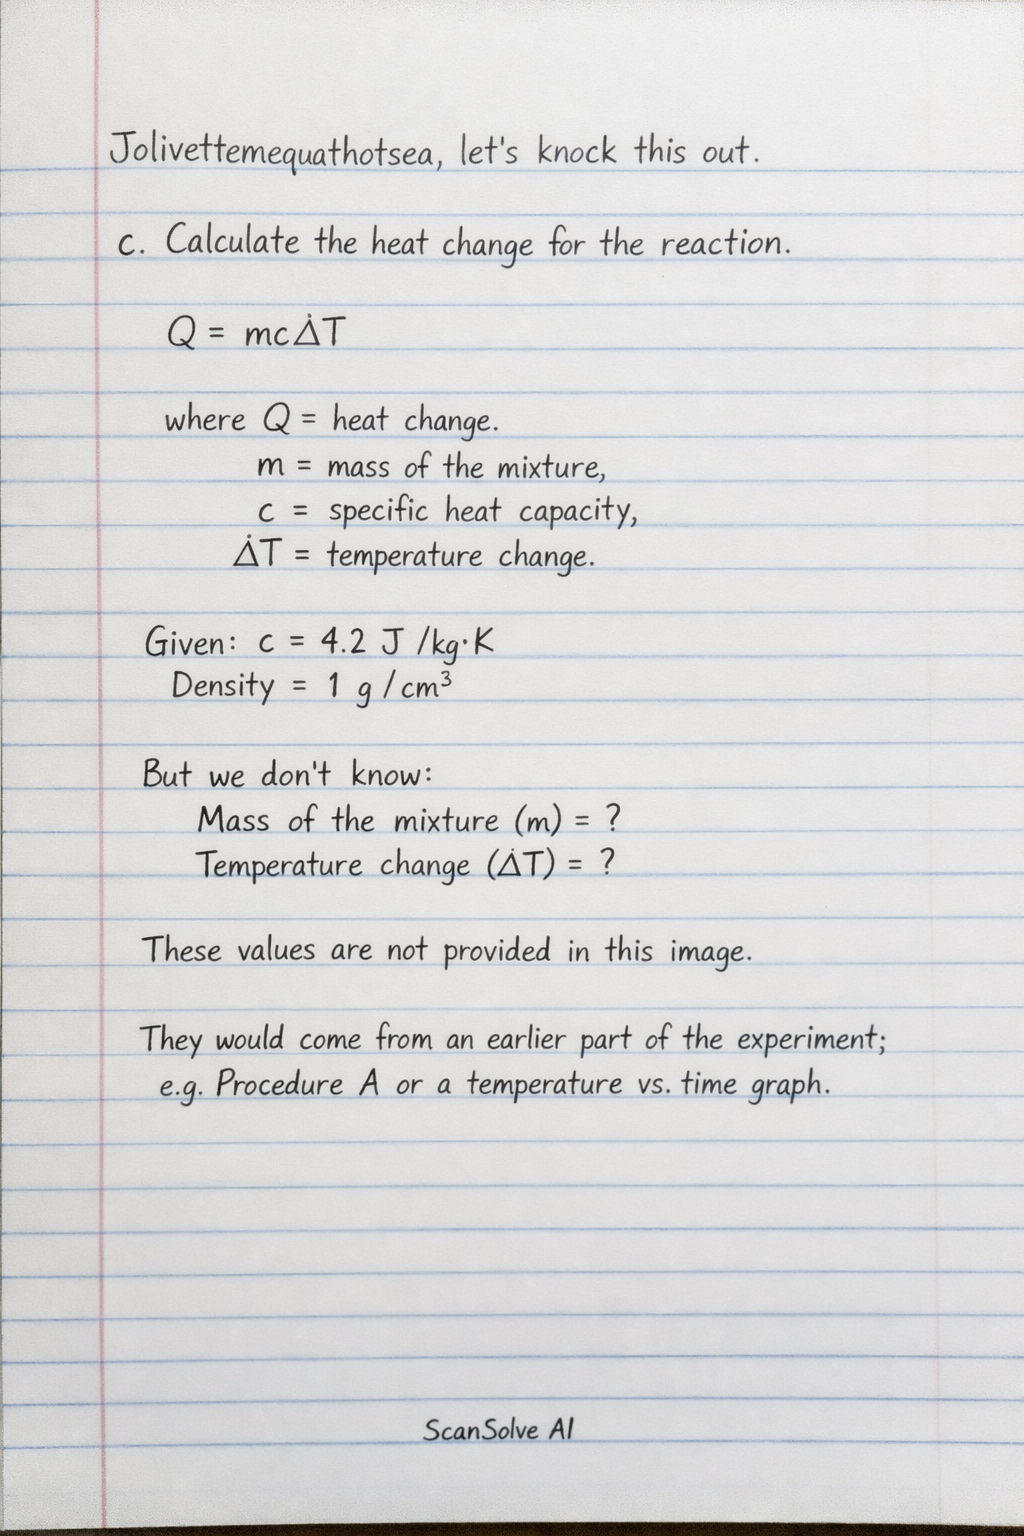 Jolivettemequathotsea, let's knock this out.
c. Calculate the heat change for the reaction.
Q = mcΔ̇T
where Q = heat change.
m = mass of the mixture,
c = specific heat capacity,
Δ̇T = temperature change.
Given: c = 4.2 J /kg·K
Density = 1 g /cm³
But we don't know:
Mass of the mixture (m) = ?
Temperature change (Δ̇T) = ?
These values are not provided in this image.
They would come from an earlier part of the experiment;
e.g. Procedure A or a temperature vs. time graph.
ScanSolve AI